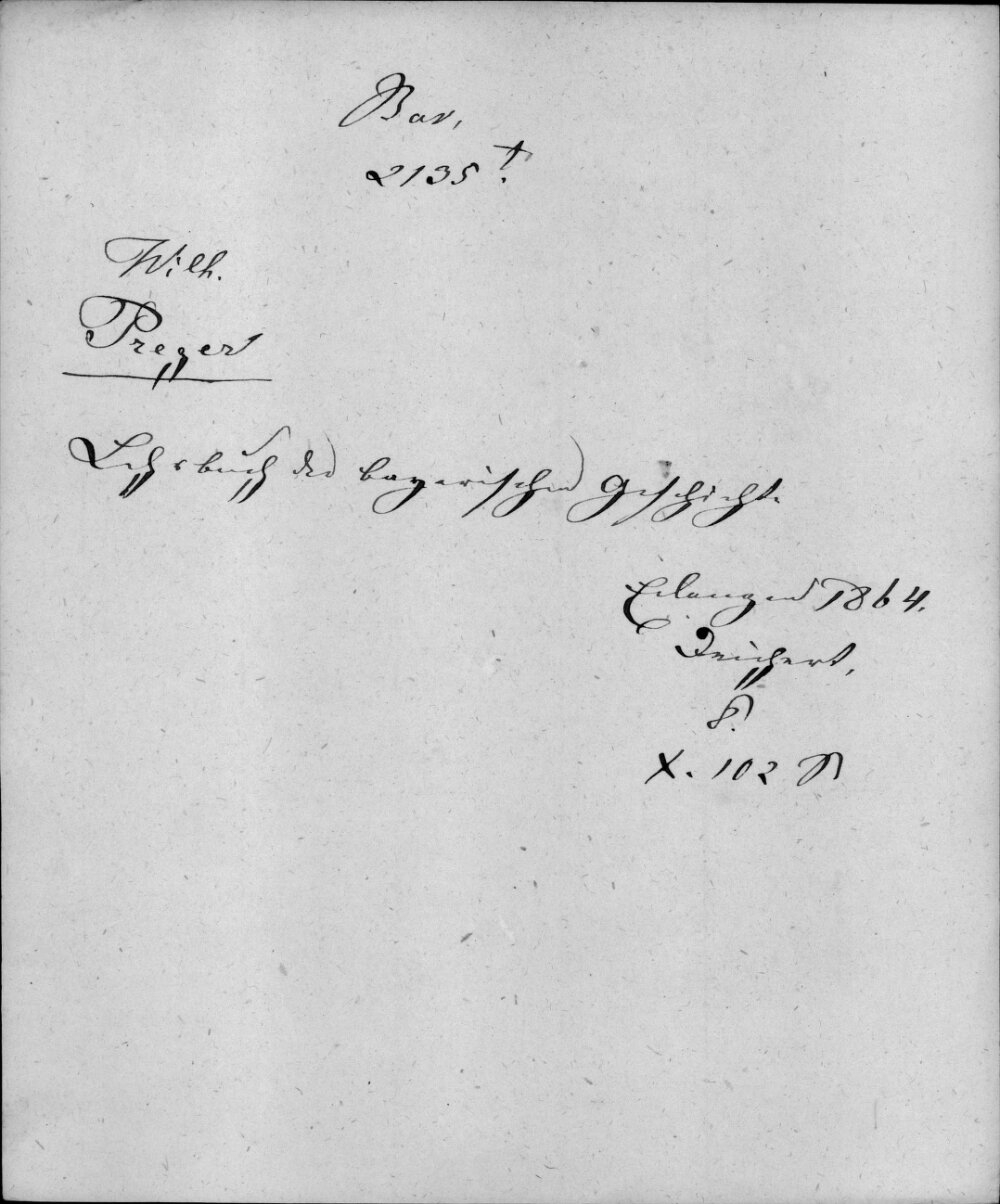 Bav.
2135 t.
Wilh.
Preger
Lehrbuch der bayerischen Geschichte
Erlangen 1864.
Deichert,
8.
X. 102 S